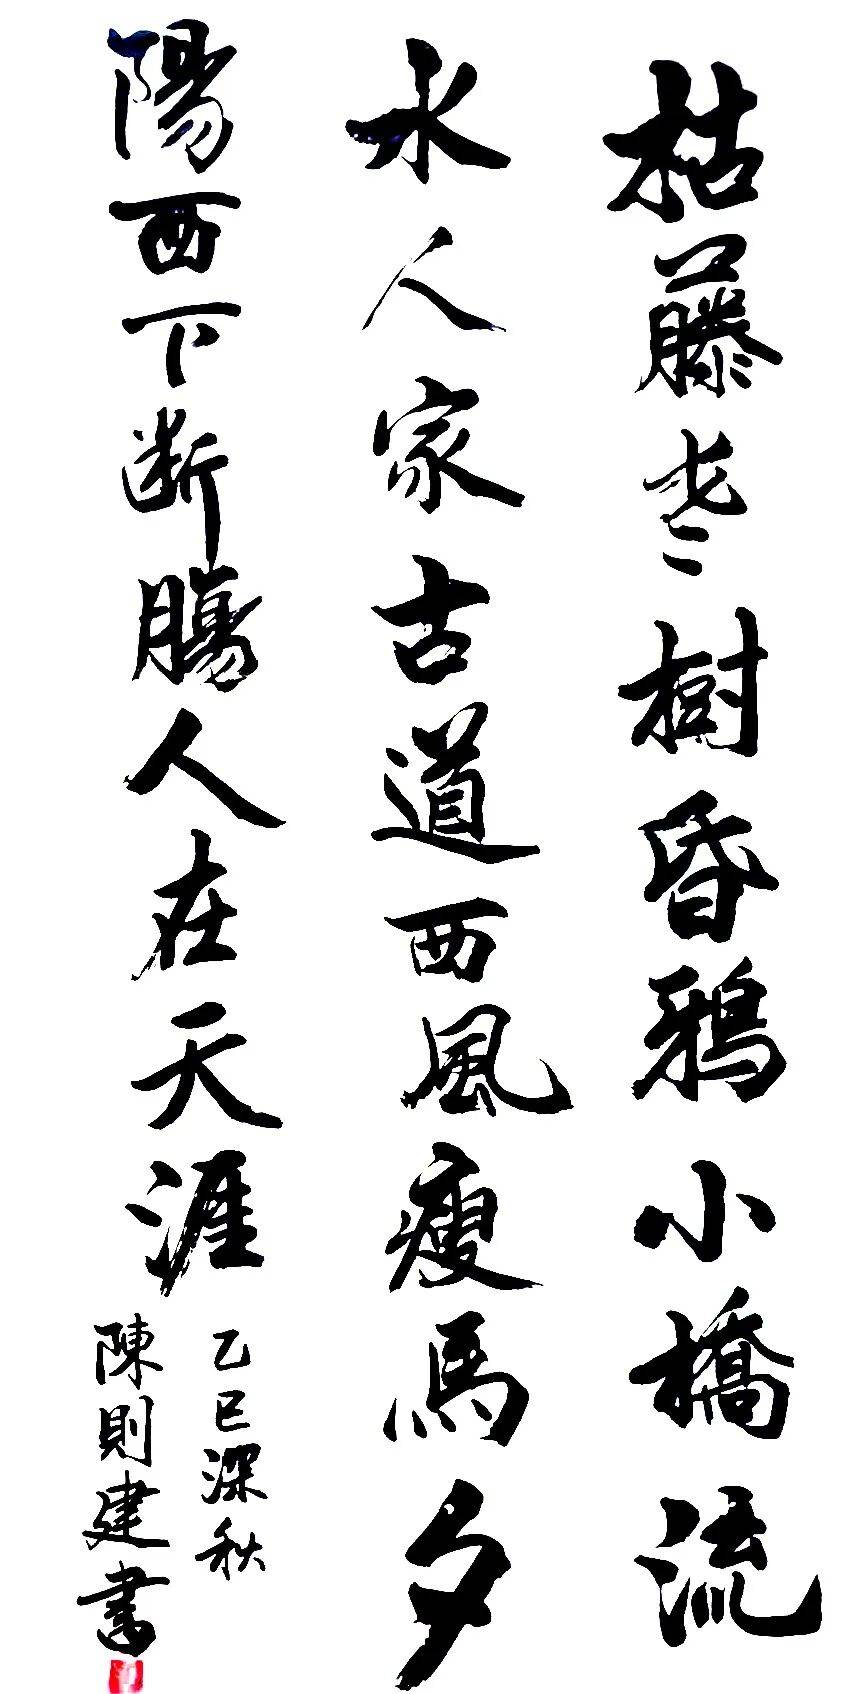 枯藤老樹昏鴉小橋流
水人家古道西風瘦馬夕
陽西下断腸人在天涯
乙巳深秋
陳則建書